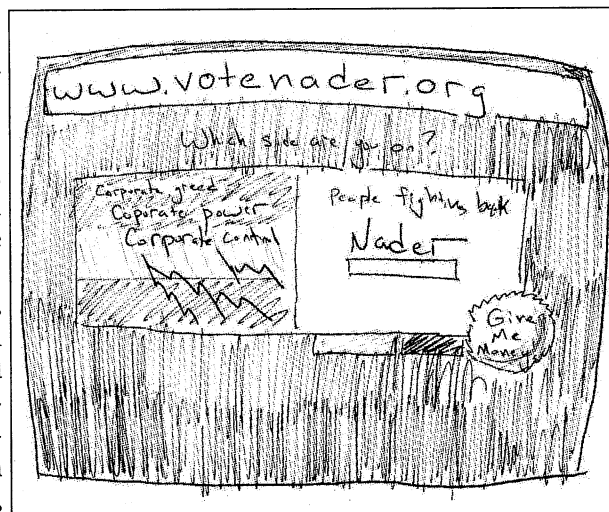 www.votenader.org
Which side are you on?
Corporate greed
Coporate power
Corporate Control
People fighting back
Nader
Give
Me
Money